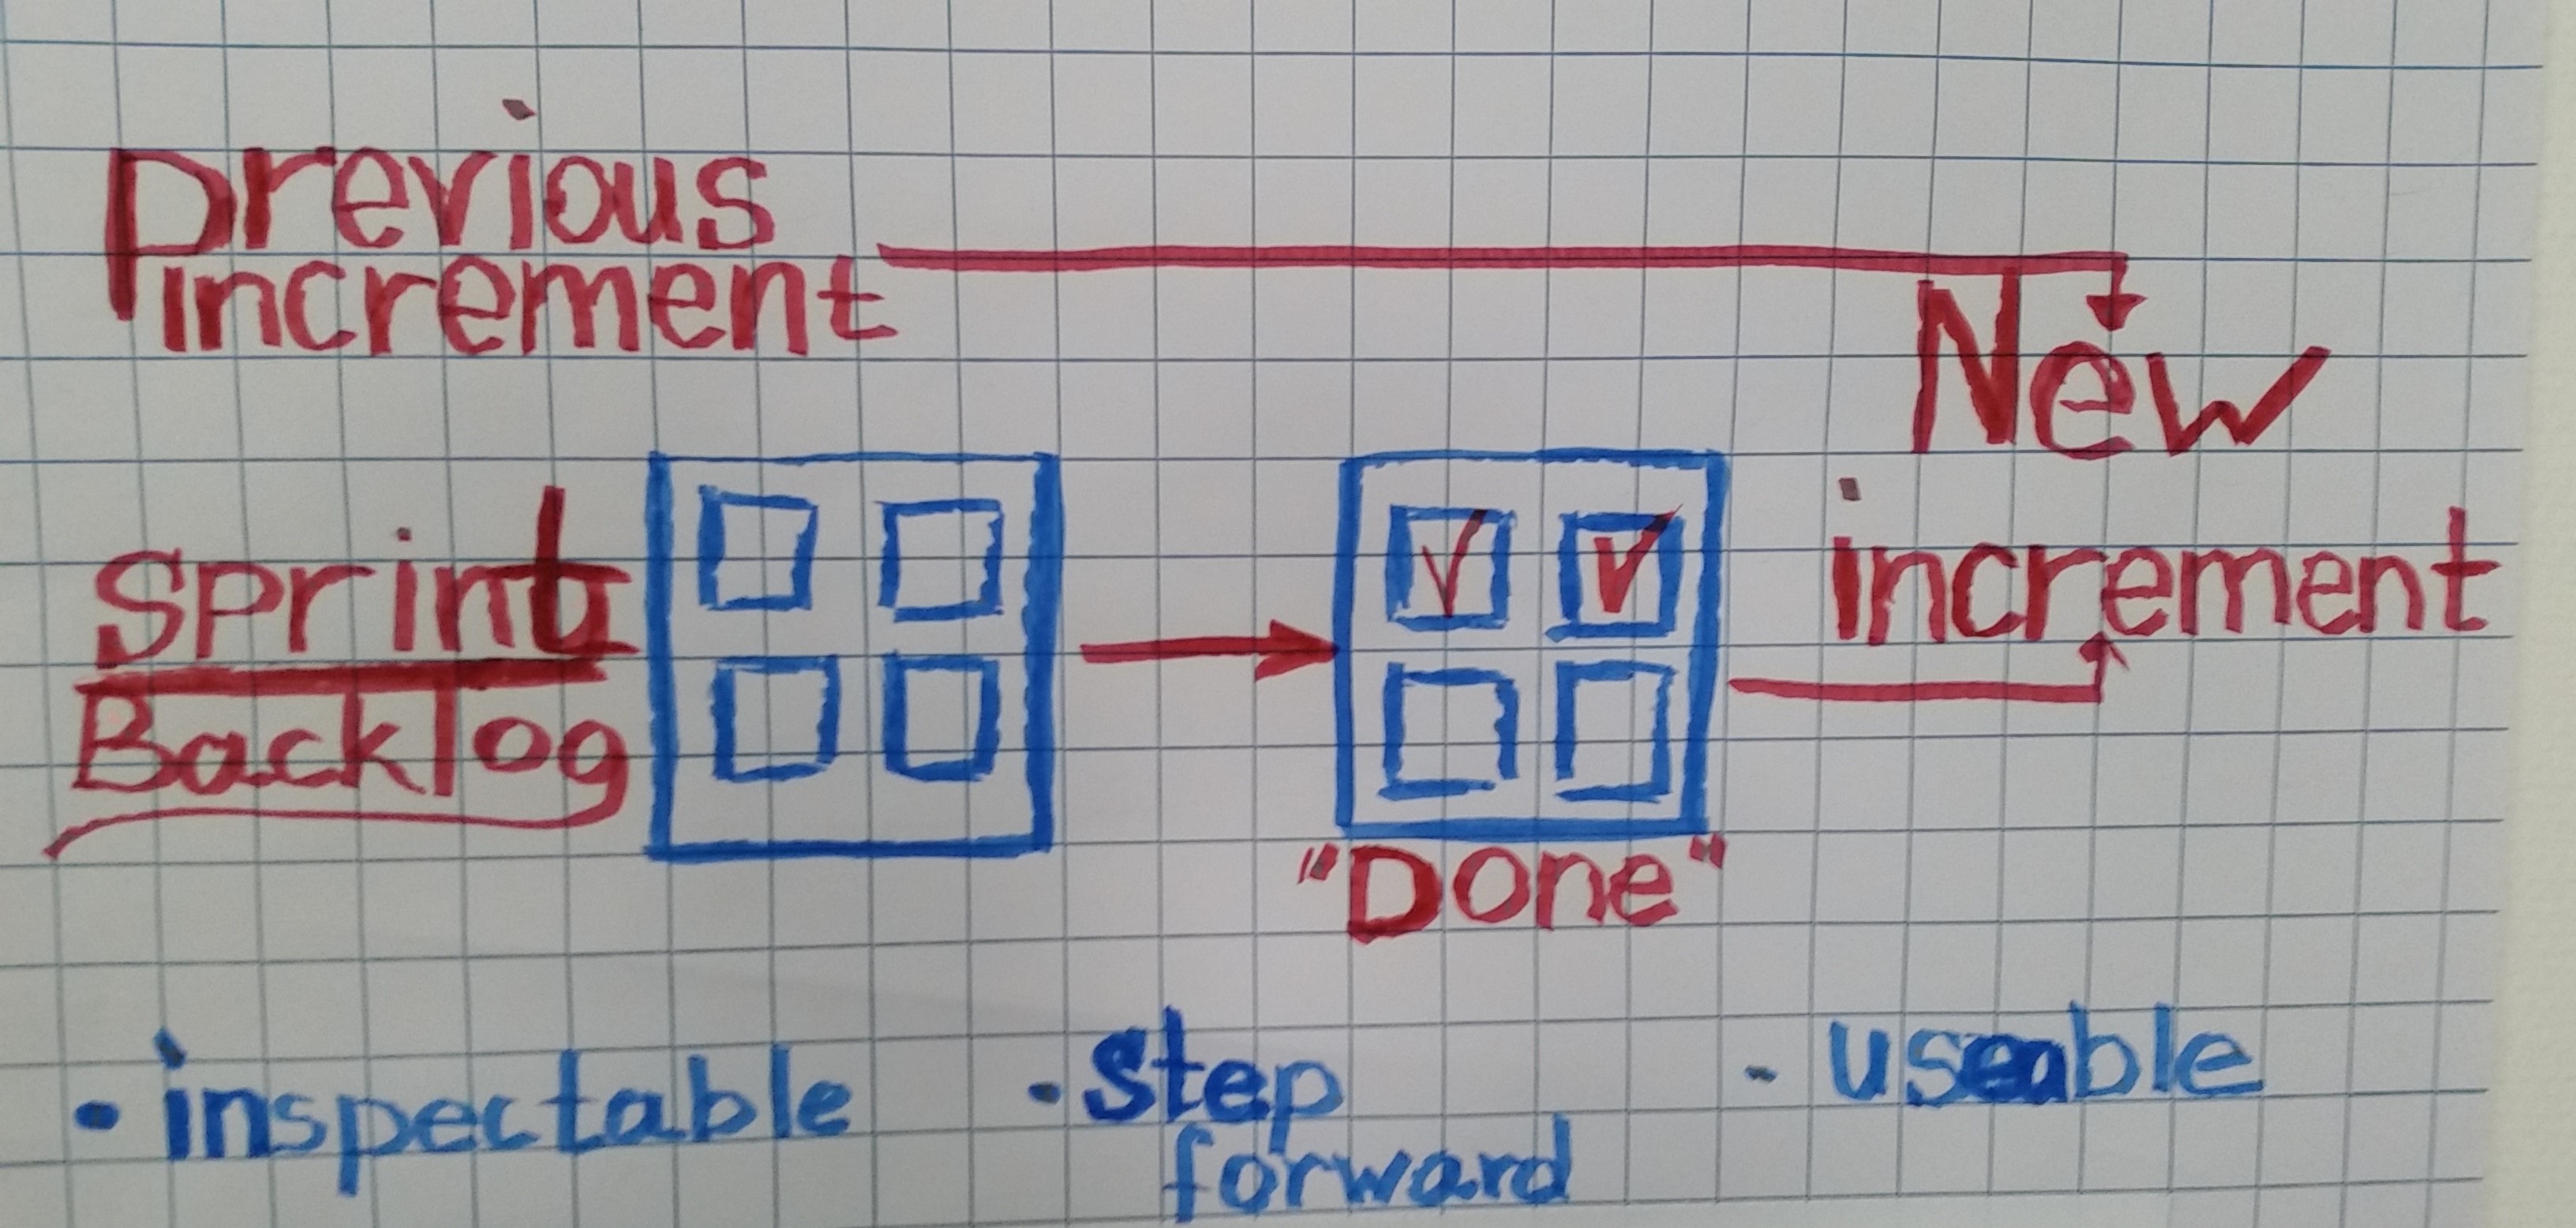 previous
increment
New
increment
Sprint
Backlog
"Done"
• inspectable
• step
forward
- useable